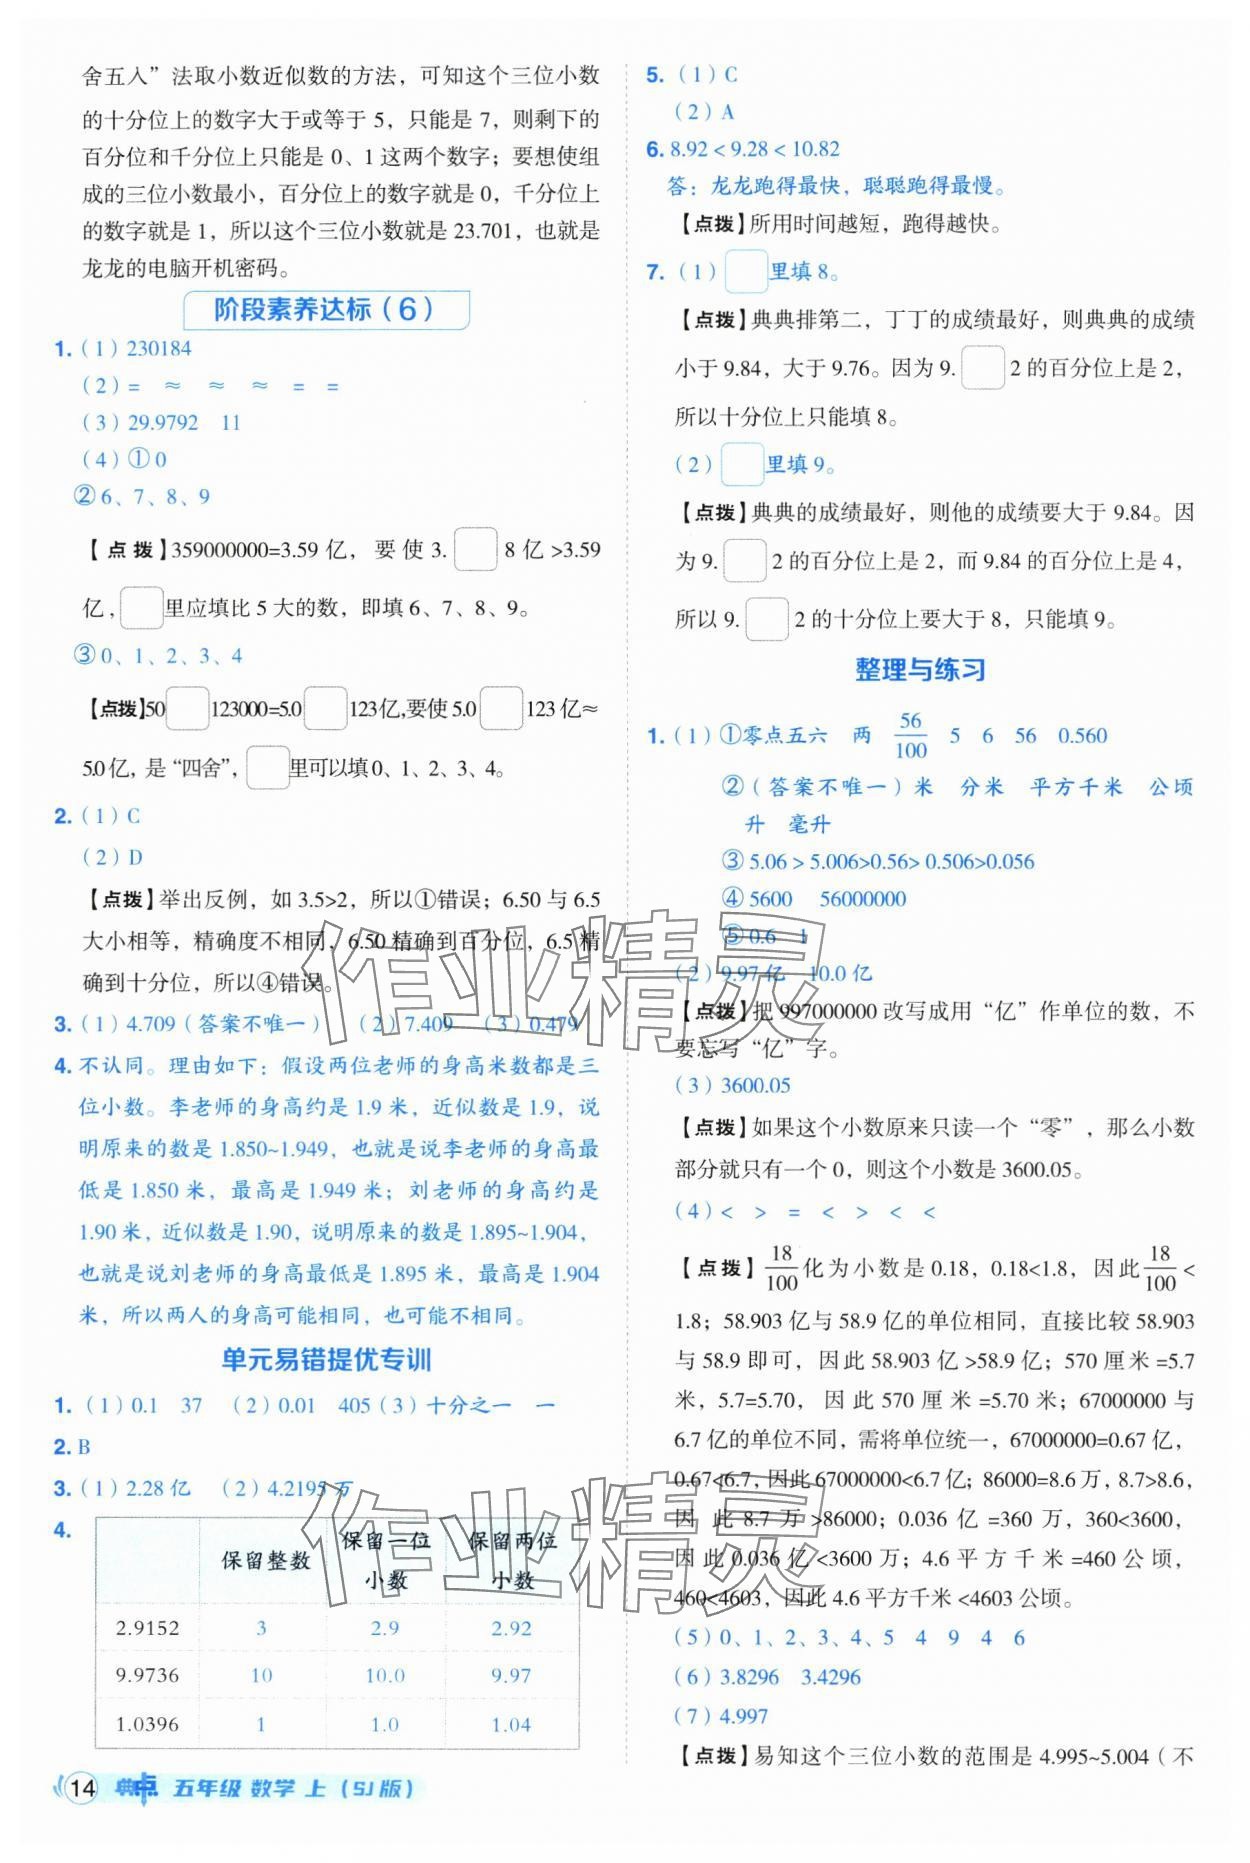 舍五入”法取小数近似数的方法，可知这个三位小数
的十分位上的数字大于或等于 5，只能是 7，则剩下的
百分位和千分位上只能是 0、1 这两个数字；要想使组
成的三位小数最小，百分位上的数字就是 0，千分位上
的数字就是 1，所以这个三位小数就是 23.701，也就是
龙龙的电脑开机密码。
阶段素养达标（6）
1.（1）230184
（2）= ≈ ≈ ≈ = =
（3）29.9792 11
（4）①0
②6、7、8、9
【点拨】359000000=3.59 亿，要使 3. □ 8 亿 >3.59
亿，□里应填比 5 大的数，即填 6、7、8、9。
③0、1、2、3、4
【点拨】50□123000=5.0□123亿,要使5.0□123亿≈
5.0亿，是“四舍”，□里可以填0、1、2、3、4。
2.（1）C
（2）D
【点拨】举出反例，如 3.5>2，所以①错误；6.50 与 6.5
大小相等，精确度不相同，6.50 精确到百分位，6.5 精
确到十分位，所以④错误。
3.（1）4.709（答案不唯一） （2）7.409 （3）0.479
4. 不认同。理由如下：假设两位老师的身高米数都是三
位小数。李老师的身高约是 1.9 米，近似数是 1.9，说
明原来的数是 1.850~1.949，也就是说李老师的身高最
低是 1.850 米，最高是 1.949 米；刘老师的身高约是
1.90 米，近似数是 1.90，说明原来的数是 1.895~1.904，
也就是说刘老师的身高最低是 1.895 米，最高是 1.904
米，所以两人的身高可能相同，也可能不相同。
单元易错提优专训
1.（1）0.1 37 （2）0.01 405（3）十分之一 一
2. B
3.（1）2.28 亿 （2）4.2195 万
4.
保留整数 保留一位小数 保留两位小数
2.9152 3 2.9 2.92
9.9736 10 10.0 9.97
1.0396 1 1.0 1.04
14 典点 五年级 数学 上（SJ 版）
5.（1）C
（2）A
6. 8.92 < 9.28 < 10.82
答：龙龙跑得最快，聪聪跑得最慢。
【点拨】所用时间越短，跑得越快。
7.（1）□里填 8。
【点拨】典典排第二，丁丁的成绩最好，则典典的成绩
小于 9.84，大于 9.76。因为 9. □ 2 的百分位上是 2，
所以十分位上只能填 8。
（2）□里填 9。
【点拨】典典的成绩最好，则他的成绩要大于 9.84。因
为 9. □ 2 的百分位上是 2，而 9.84 的百分位上是 4，
所以 9. □ 2 的十分位上要大于 8，只能填 9。
整理与练习
1.（1）①零点五六 两 56/100 5 6 56 0.560
②（答案不唯一）米 分米 平方千米 公顷
升 毫升
③ 5.06 > 5.006>0.56> 0.506>0.056
④ 5600 56000000
⑤ 0.6 1
（2）9.97 亿 10.0 亿
【点拨】把 997000000 改写成用“亿”作单位的数，不
要忘写“亿”字。
（3）3600.05
【点拨】如果这个小数原来只读一个“零”，那么小数
部分就只有一个 0，则这个小数是 3600.05。
（4）< > = < > < <
【点拨】18/100化为小数是 0.18，0.18<1.8，因此18/100<
1.8；58.903 亿与 58.9 亿的单位相同，直接比较 58.903
与 58.9 即可，因此 58.903 亿 >58.9 亿；570 厘米 =5.7
米，5.7=5.70，因此 570 厘米 =5.70 米；67000000 与
6.7 亿的单位不同，需将单位统一，67000000=0.67 亿，
0.67<6.7，因此 67000000<6.7 亿；86000=8.6 万，8.7>8.6，
因此 8.7 万 >86000；0.036 亿 =360 万，360<3600，
因此 0.036 亿 <3600 万；4.6 平方千米 =460 公顷，
460<4603，因此 4.6 平方千米 <4603 公顷。
（5）0、1、2、3、4、5 4 9 4 6
（6）3.8296 3.4296
（7）4.997
【点拨】易知这个三位小数的范围是 4.995~5.004（不
作业精灵
作业精灵